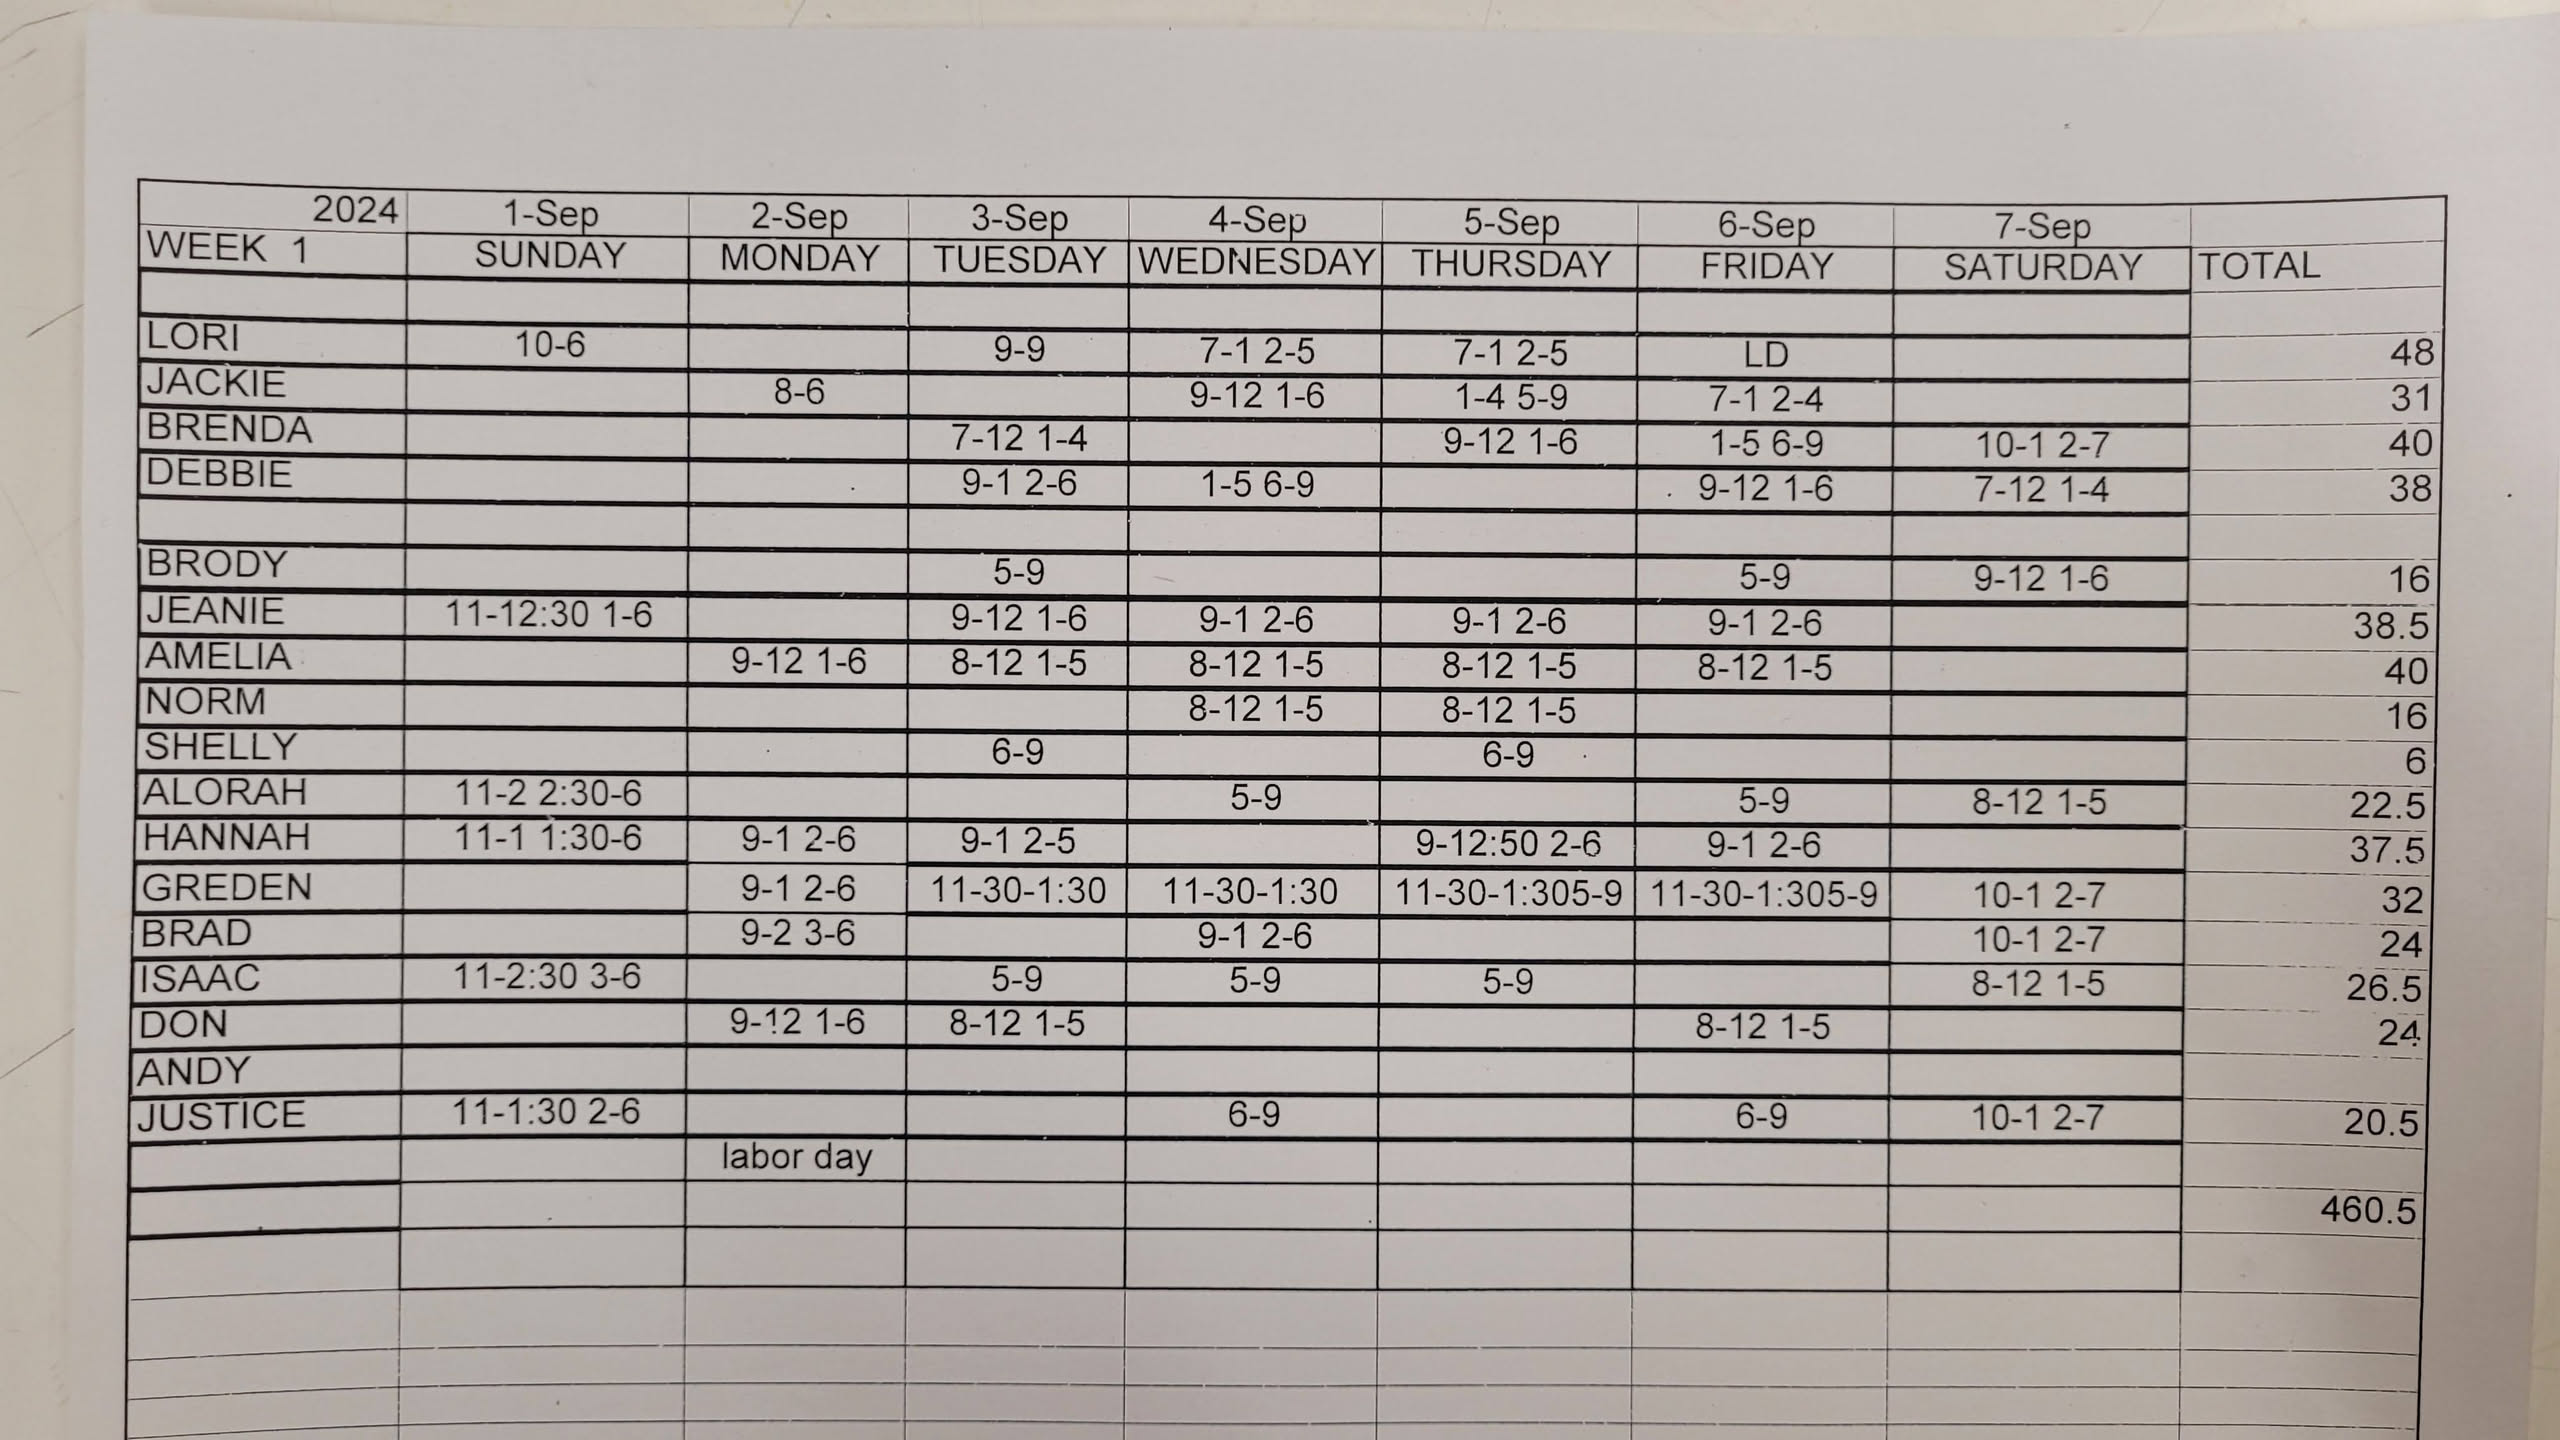 2024 1-Sep 2-Sep 3-Sep 4-Sep 5-Sep 6-Sep 7-Sep
WEEK 1 SUNDAY MONDAY TUESDAY WEDNESDAY THURSDAY FRIDAY SATURDAY TOTAL
LORI 10-6 9-9 7-1 2-5 7-1 2-5 LD 48
JACKIE 8-6 9-12 1-6 1-4 5-9 7-1 2-4 31
BRENDA 7-12 1-4 9-12 1-6 1-5 6-9 10-1 2-7 40
DEBBIE 9-1 2-6 1-5 6-9 9-12 1-6 7-12 1-4 38
BRODY 5-9 5-9 9-12 1-6 16
JEANIE 11-12:30 1-6 9-12 1-6 9-1 2-6 9-1 2-6 9-1 2-6 38.5
AMELIA 9-12 1-6 8-12 1-5 8-12 1-5 8-12 1-5 8-12 1-5 40
NORM 8-12 1-5 8-12 1-5 16
SHELLY 6-9 6-9 6
ALORAH 11-2 2:30-6 5-9 5-9 8-12 1-5 22.5
HANNAH 11-1 1:30-6 9-1 2-6 9-1 2-5 9-12:50 2-6 9-1 2-6 37.5
GREDEN 9-1 2-6 11-30-1:30 11-30-1:30 11-30-1:305-9 11-30-1:305-9 10-1 2-7 32
BRAD 9-2 3-6 9-1 2-6 10-1 2-7 24
ISAAC 11-2:30 3-6 5-9 5-9 5-9 8-12 1-5 26.5
DON 9-12 1-6 8-12 1-5 8-12 1-5 24
ANDY
JUSTICE 11-1:30 2-6 6-9 6-9 10-1 2-7 20.5
labor day
460.5